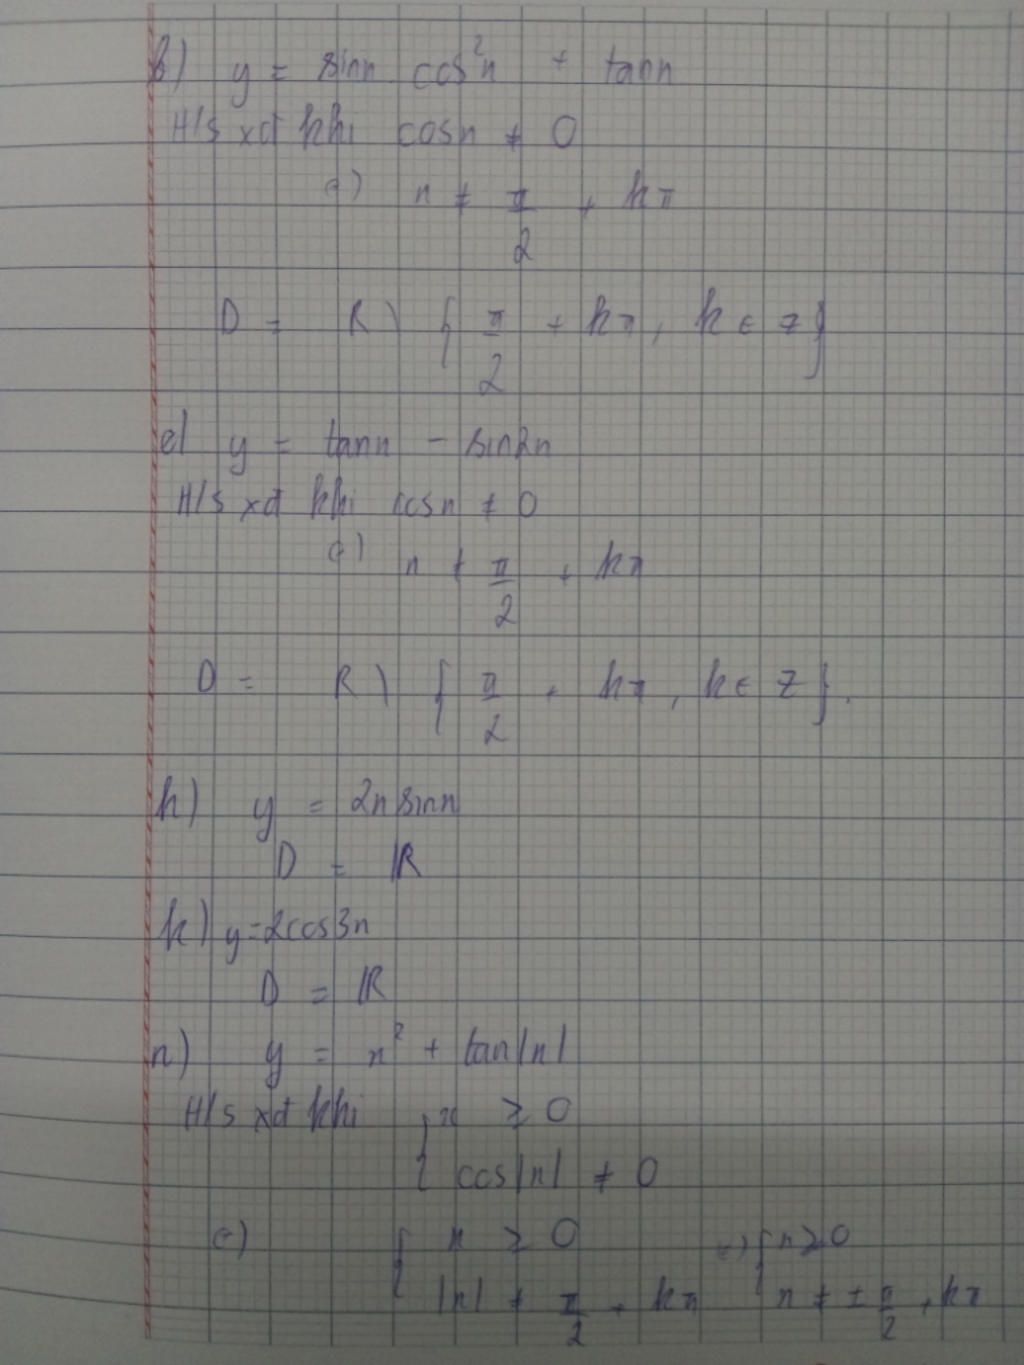 b) y = sinx . cos²x + tanx
H/s xđ khi cosx ≠ 0
⇔ x ≠ π/2 + kπ
D = R \ { π/2 + kπ, k ∈ Z }
e) y = tanx - sin2x
H/s xđ khi cosx ≠ 0
⇔ x ≠ π/2 + kπ
D = R \ { π/2 + kπ, k ∈ Z }.
h) y = 2x sinx
D = ℝ
k) y = 2cos3x
D = ℝ
n) y = x² + tan|x|
H/s xđ khi { x ≥ 0
cos|x| ≠ 0
⇔ { x ≥ 0 ⇔ { x ≥ 0
|x| ≠ π/2 + kπ x ≠ ± π/2 + kπ